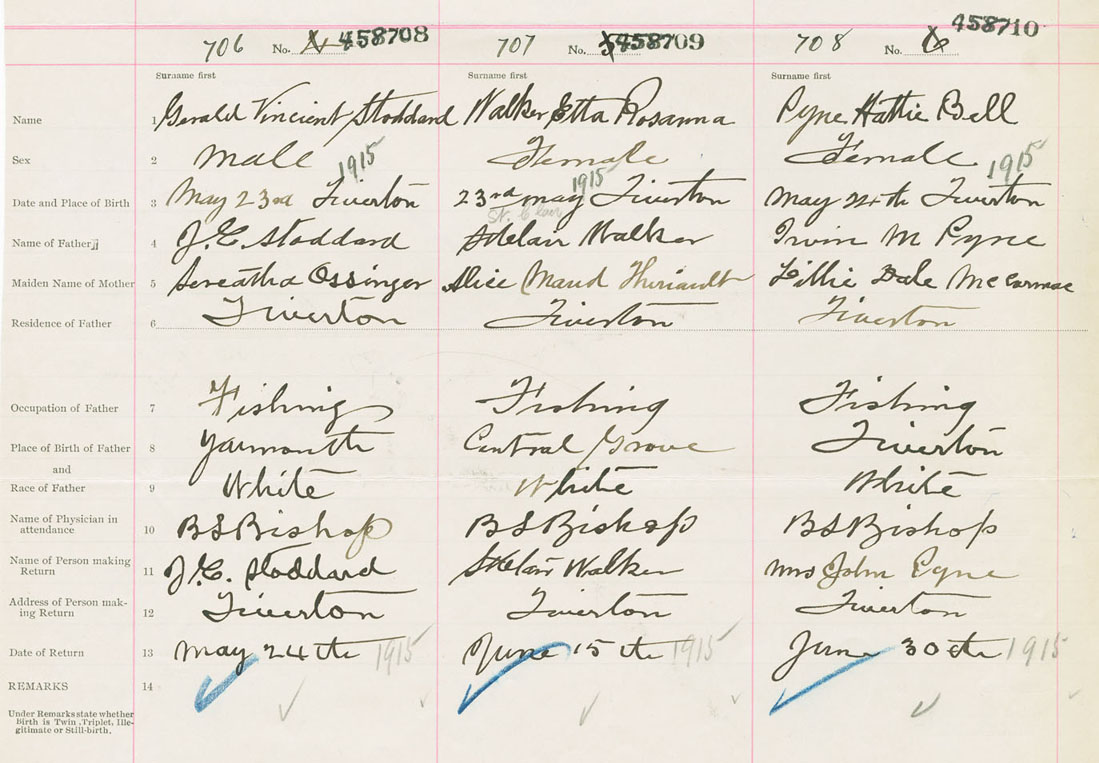 706 No. 458708 707 No. 458709 708 No. 6 458710
Surname first Surname first Surname first
Name 1 Gerald Vincient Stoddard Walker Etta Rosanna Pyne Hattie Bell
Sex 2 Male Female Female
1915 1915 1915
Date and Place of Birth 3 May 23rd Tiverton 23rd May Tiverton May 24th Tiverton
St. Clair
Name of Father 4 J.E. Stoddard Walker Irvin M Pyne
Maiden Name of Mother 5 Ossinger Alice Maud Thuriault Lillie Dale McCormac
Residence of Father 6 Tiverton Tiverton Tiverton
Occupation of Father 7 Fishing Fishing Fishing
Place of Birth of Father 8 Yarmouth Central Grove Tiverton
and
Race of Father 9 White White White
Name of Physician in
attendance 10 BSBishop BSBishop BSBishop
Name of Person making
Return 11 J.E. Stoddard Walker Mrs John Pyne
Address of Person mak-
ing Return 12 Tiverton Tiverton Tiverton
Date of Return 13 May 24th 1915 June 15th 1915 June 30th 1915
REMARKS 14
Under Remarks state whether
Birth is Twin, Triplet, Ille-
gitimate or Still-birth.